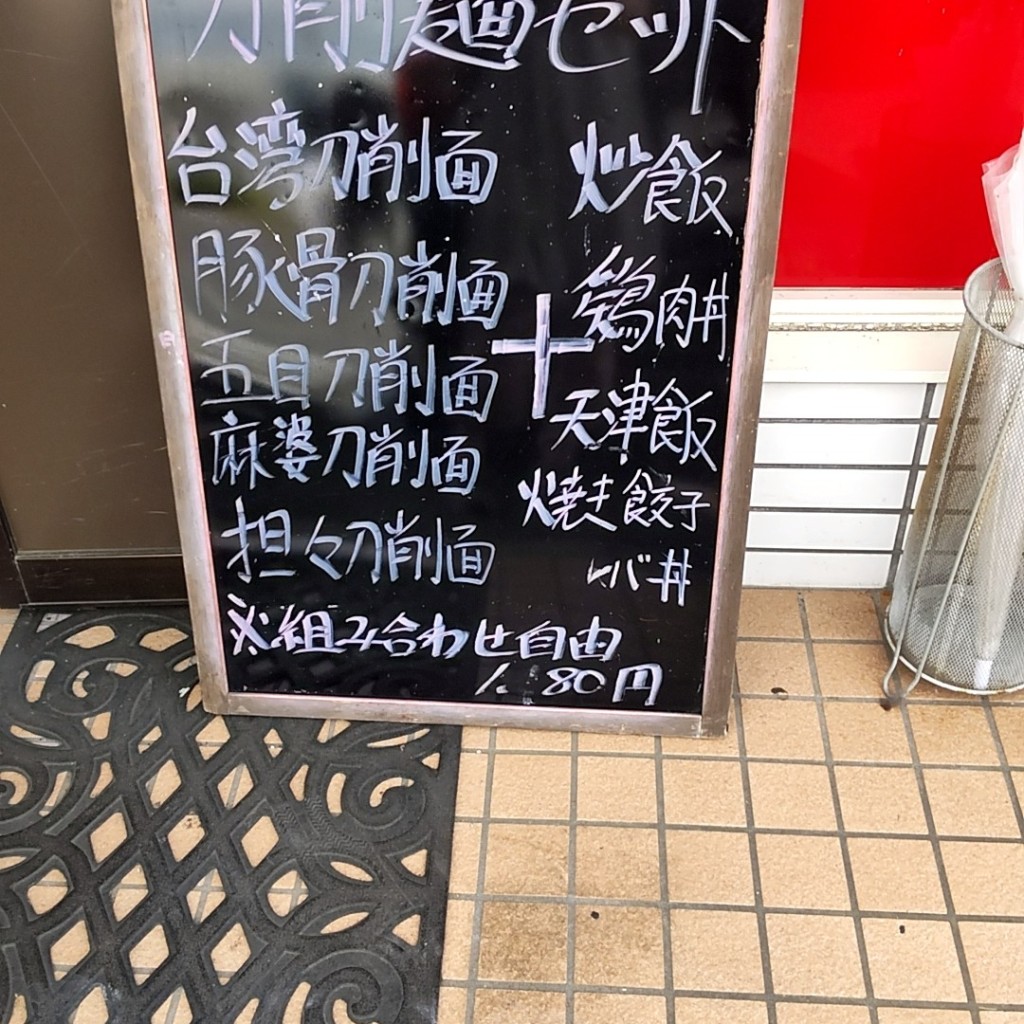 刀削麺セット
台湾刀削面
豚骨刀削面
五目刀削面
麻婆刀削面
担々刀削面
+
炒飯
鶏肉丼
天津飯
焼き餃子
バ丼
※組み合わせ自由
80円